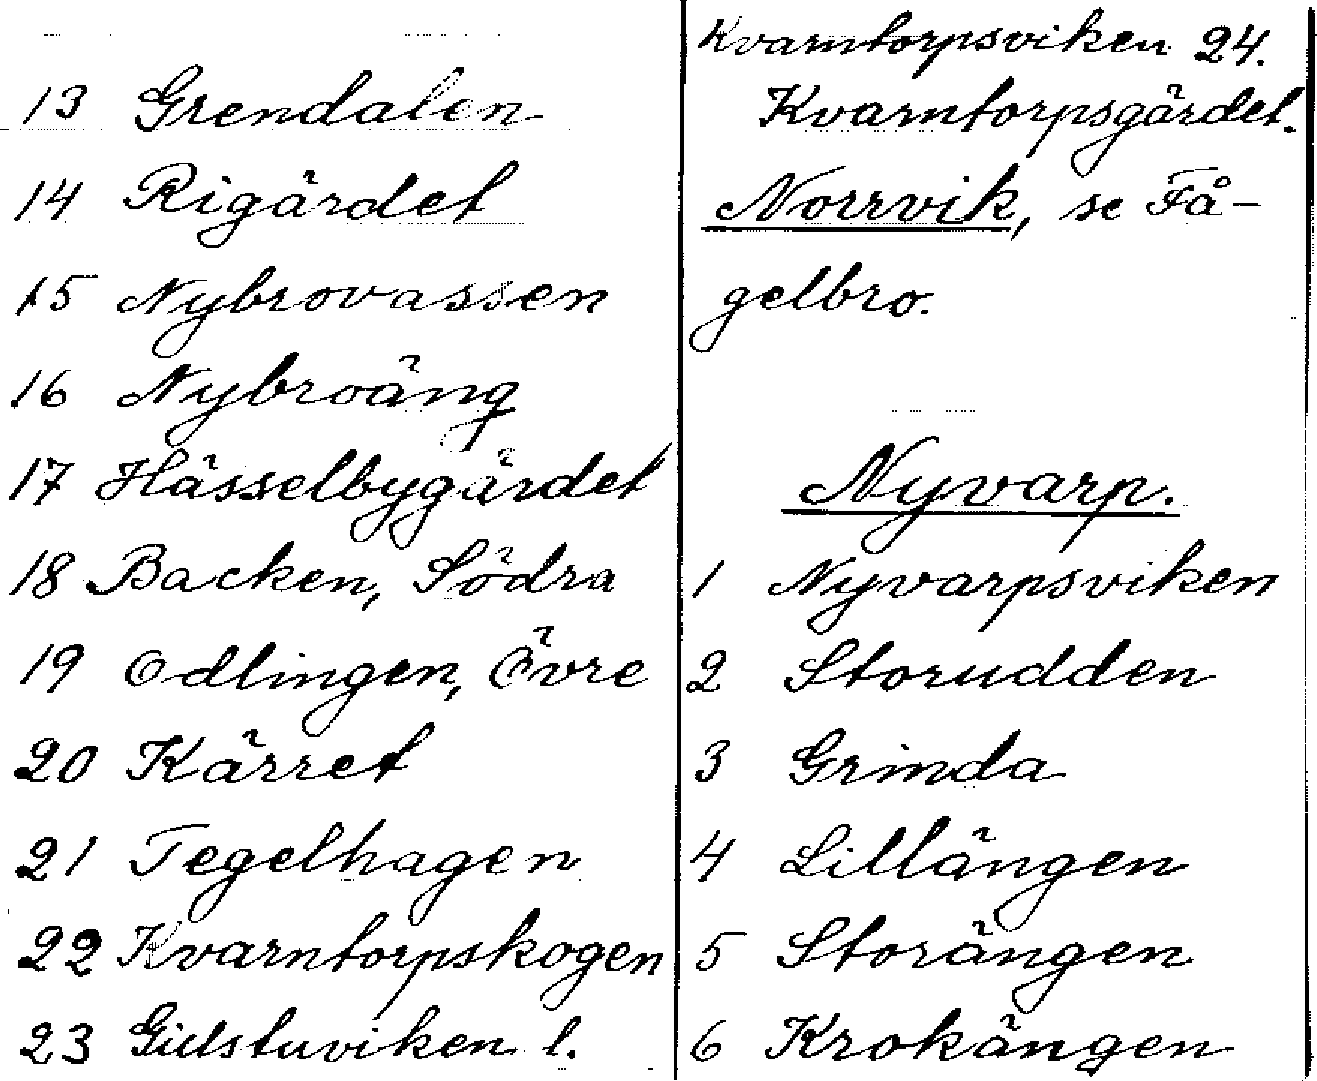 13 Grendalen
14 Rigärdet
15 Nybrovassen
16 Nybroäng
17 Hässelbygärdet
18 Backen, Södra
19 Odlingen, Övre
20 Kärret
21 Tegelhagen
22 Kvarntorpskogen
23 Gillstuviken l.
Kvarntorpsviken 24.
Kvarntorpsgärdet.
Norrvik, se Få-
gelbro.
Nyvarp.
1 Nyvarpsviken
2 Storudden
3 Grinda
4 Lillängen
5 Storängen
6 Krokängen